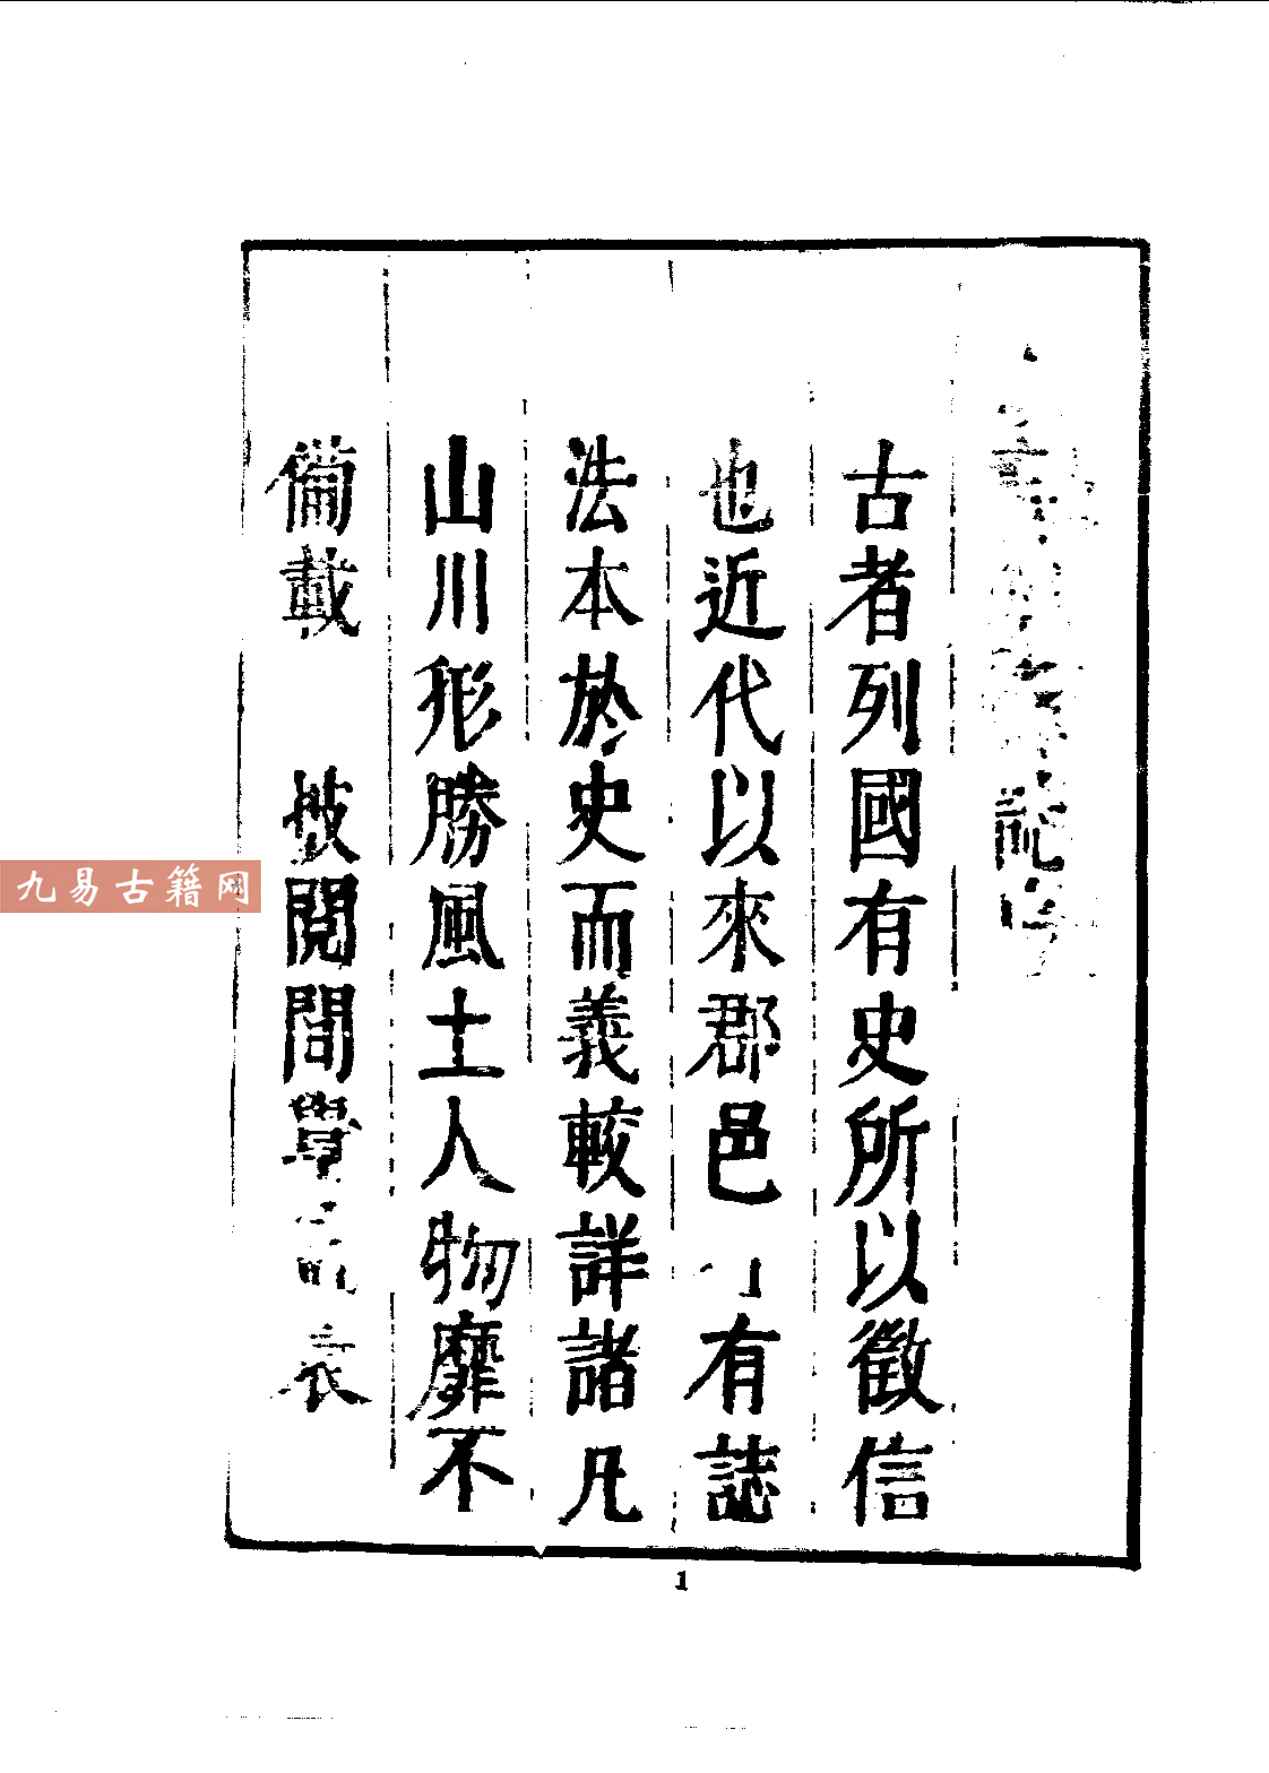 古者列國有史所以徵信
也近代以來郡邑有誌
法本於史而義較詳諸凡
山川形勝風土人物靡不
備載 披閱間舉 表
九易古籍网
1